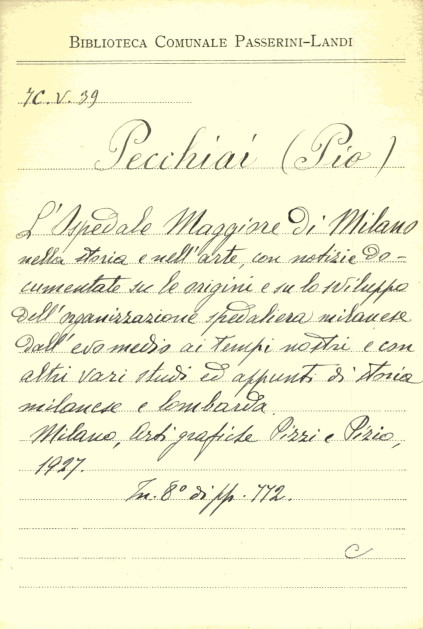 BIBLIOTECA COMUNALE PASSERINI-LANDI
7C.V.39
Pecchiai (Pio)
L'Ospedale Maggiore di Milano
nella storia e nell'arte, con notizie do-
cumentate su le origini e su lo sviluppo
dell'organizzazione spedaliera milanese
dall'evo medio ai tempi nostri e con
altri vari studi ed appunti di storia
milanese e lombarda.
Milano, Arti grafiche Pizzi e Pizio,
1927.
In. 8° di pp. 772.
C